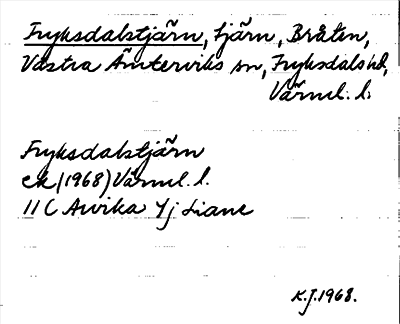 Fryksdalstjärn, tjärn, Bråten,
Västra Ämterviks sn, Fryksdals hd,
Värml. l.
Fryksdalstjärn
ek (1968) Värml. l.
11 C Arvika Yj Liane
K.J. 1968.